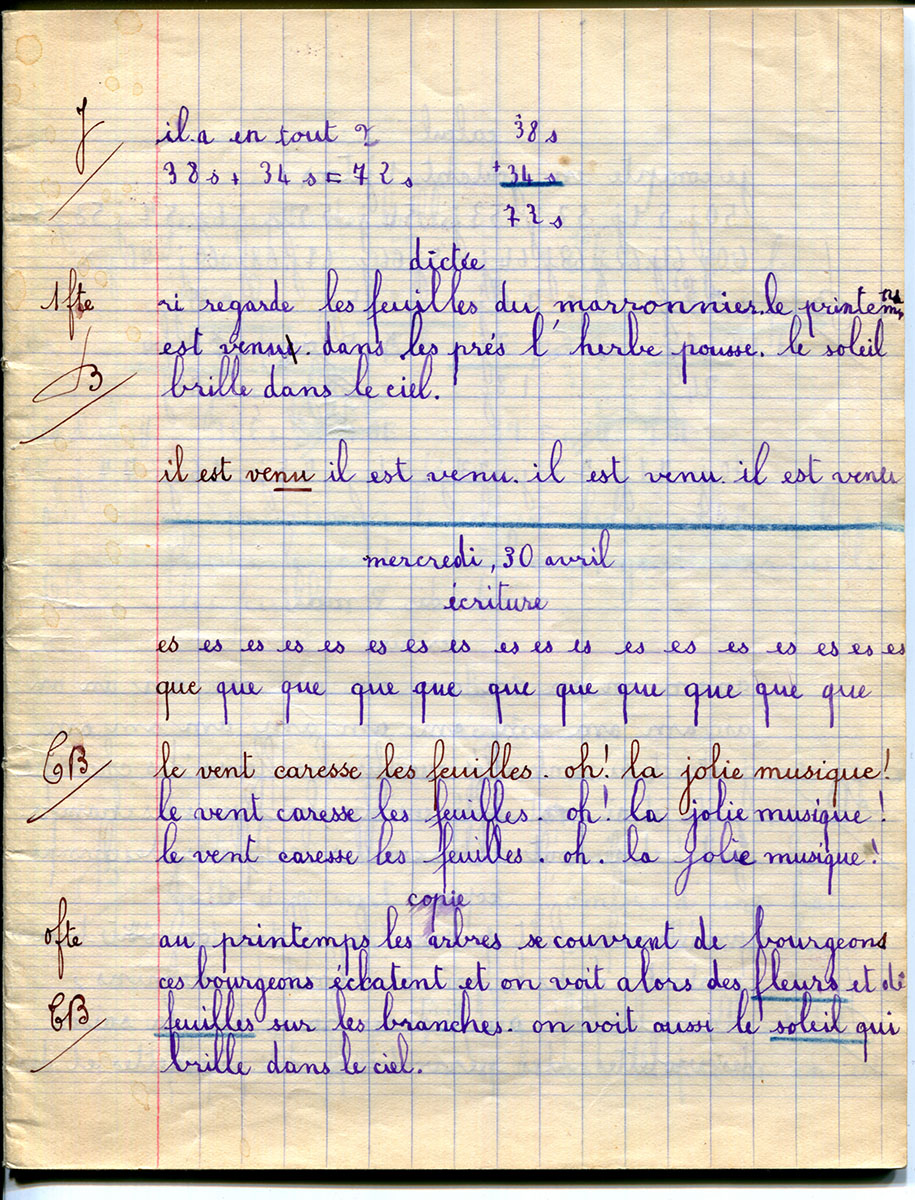 J
il a en tout ?
38 s + 34 s = 72 s
38 s
+ 34 s
72 s
dictée
1 fte
ri regarde les feuilles du marronnier. le printemps
est venu. dans les prés l'herbe pousse. le soleil
B
brille dans le ciel.
il est venu il est venu. il est venu. il est venu
mercredi, 30 avril
écriture
es es es es es es es es es es es es es es es es es es
que que que que que que que que que que que
TB
le vent caresse les feuilles. oh! la jolie musique!
le vent caresse les feuilles. oh! la jolie musique!
le vent caresse les feuilles. oh. la jolie musique!
copie
0 fte
au printemps les arbres se couvrent de bourgeons
ces bourgeons éclatent et on voit alors des fleurs et de
TB
feuilles sur les branches. on voit aussi le soleil qui
brille dans le ciel.